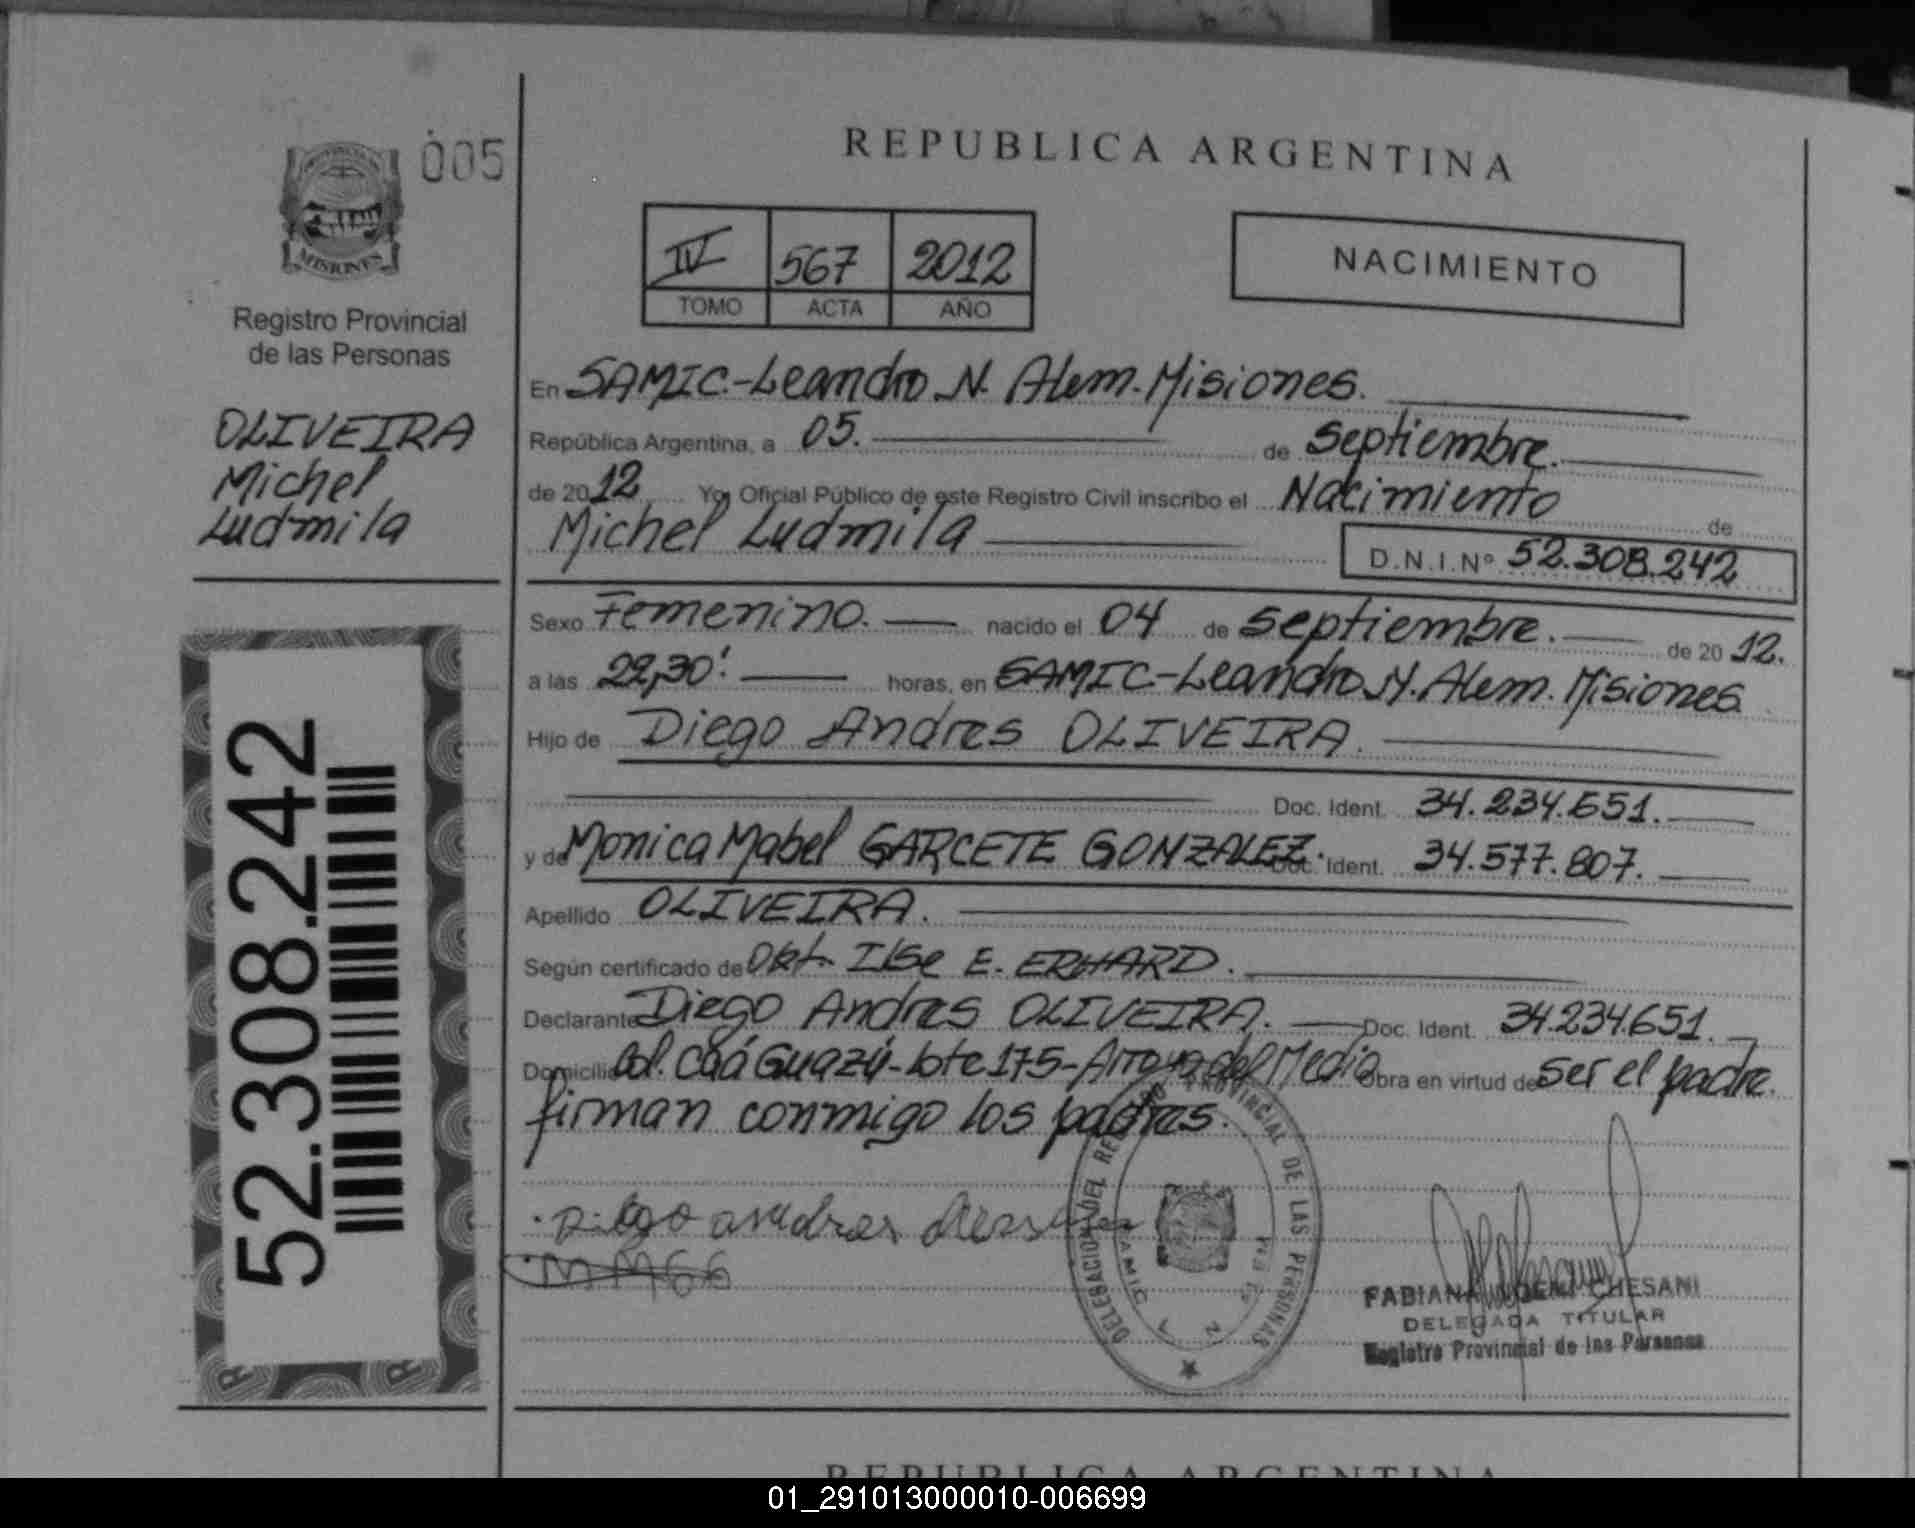 005
MISIONES
Registro Provincial
de las Personas
OLIVEIRA
Michel
Ludmila
52.308.242
REPUBLICA ARGENTINA
IV 567 2012
TOMO ACTA AÑO
NACIMIENTO
En SAMIC.-Leandro N. Alem.-Misiones.
República Argentina, a 05. de Septiembre.
de 2012 Yo, Oficial Público de este Registro Civil inscribo el Nacimiento
de
Michel Ludmila
D.N.I.Nº 52.308.242
Sexo Femenino. nacido el 04 de Septiembre. de 2012.
a las 22,30'. horas, en SAMIC-Leandro N. Alem. Misiones
Hijo de Diego Andres OLIVEIRA.
Doc. Ident. 34.234.651.
y de Monica Mabel GARCETE GONZALEZ. Doc. Ident. 34.577.807.
Apellido OLIVEIRA.
Según certificado de Obst. Ilse E. ERHARD.
Declarante Diego Andres OLIVEIRA. Doc. Ident. 34.234.651.
Domicilio Col. Caá Guazú-lote 175-Arroyo del Medio Obra en virtud de Ser el padre.
firman conmigo los padres.
DELEGACION DEL REGISTRO PROVINCIAL DE LAS PERSONAS
SAMIC
FABIANA NOEMI CHESANI
DELEGADA TITULAR
Registro Provincial de las Personas
REPUBLICA ARGENTINA
01_291013000010-006699